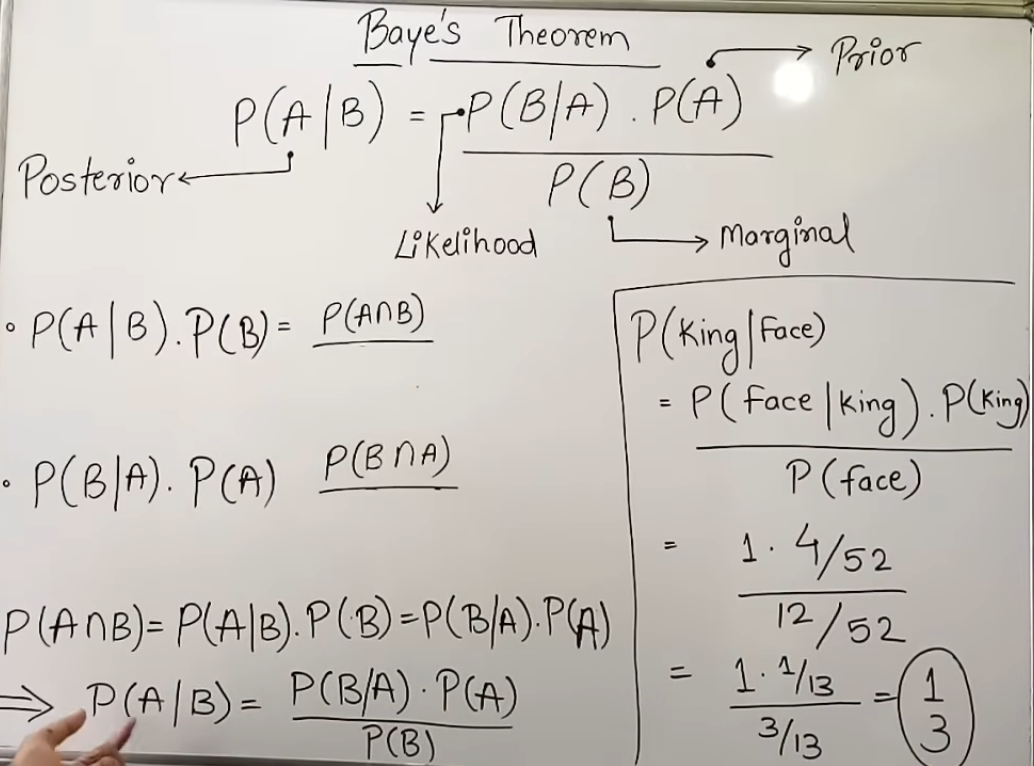 Baye's Theorem
P(A|B) = P(B|A) . P(A)
P(B)
Prior
Posterior
Likelihood
Marginal
• P(A|B).P(B) = P(A∩B)
• P(B|A). P(A) P(B∩A)
P(A∩B) = P(A|B).P(B) = P(B/A).P(A)
⇒ P(A|B) = P(B/A) . P(A)
P(B)
P(King|Face)
= P(Face|King) . P(King)
P(face)
= 1 . 4/52
12/52
= 1 . 1/13 = 1
3/13 3